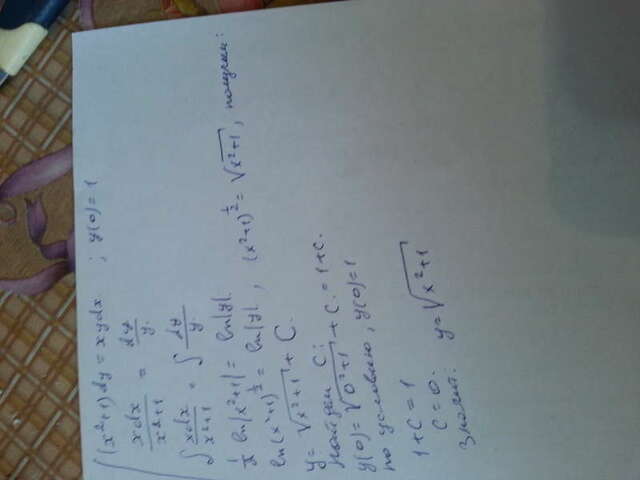 (x²+1)dy = xydx ; y(0) = 1
xdx/x²+1 = dy/y.
∫ xdx/x²+1 = ∫ dy/y
½ ln|x²+1| = ln|y|.
ln(x²+1)^½ = ln|y|, (x²+1)^½ = √x²+1, получим:
y = √x²+1 + C.
Найдем C:
y(0) = √0²+1 + C. = 1+C.
по условию, y(0) = 1
1+C = 1
C = 0.
Значит: y = √x²+1